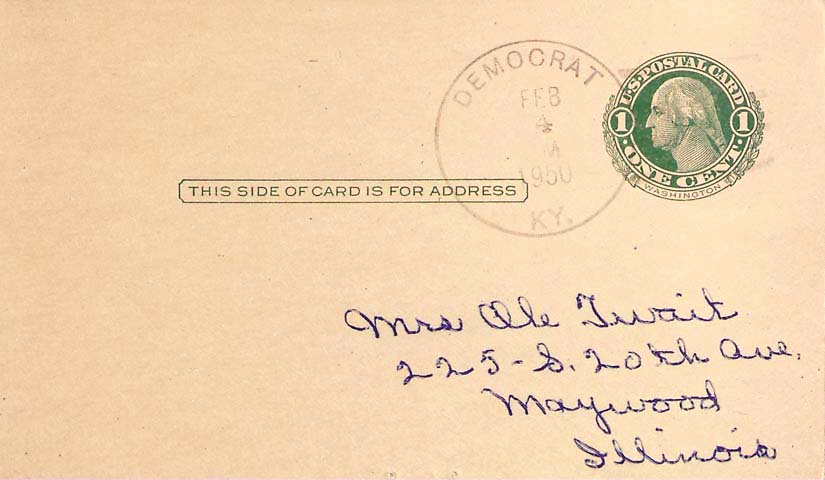 DEMOCRAT
FEB
4
M
1950
KY.
U.S. POSTAL CARD
1 1
ONE CENT
WASHINGTON
THIS SIDE OF CARD IS FOR ADDRESS
Mrs Ole Twait
225 - S. 20th Ave.
Maywood
Illinois